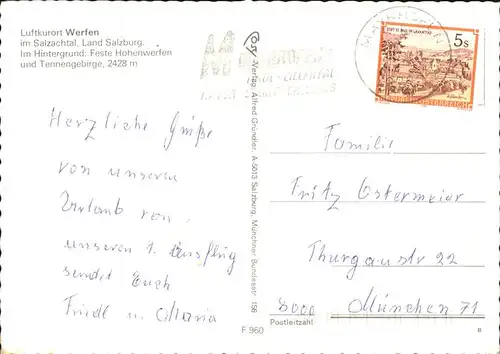 Luftkurort Werfen
im Salzachtal, Land Salzburg.
Im Hintergrund: Feste Hohenwerfen
und Tennengebirge, 2428 m
Herzliche Grüße
von unseren
Urlaub von,
unseren 1. Ausflug
sendet Euch
Friedl u. Maria
Cosy-Verlag Alfred Gründler, A-5013 Salzburg, Münchner Bundesstr. 156
F 960
5s
STIFT ST. PAUL IM LAVANTTAL
REPUBLIK ÖSTERREICH
Familie
Fritz Ostermeier
Thurgaustr 22
8000 München 71
Postleitzahl
B